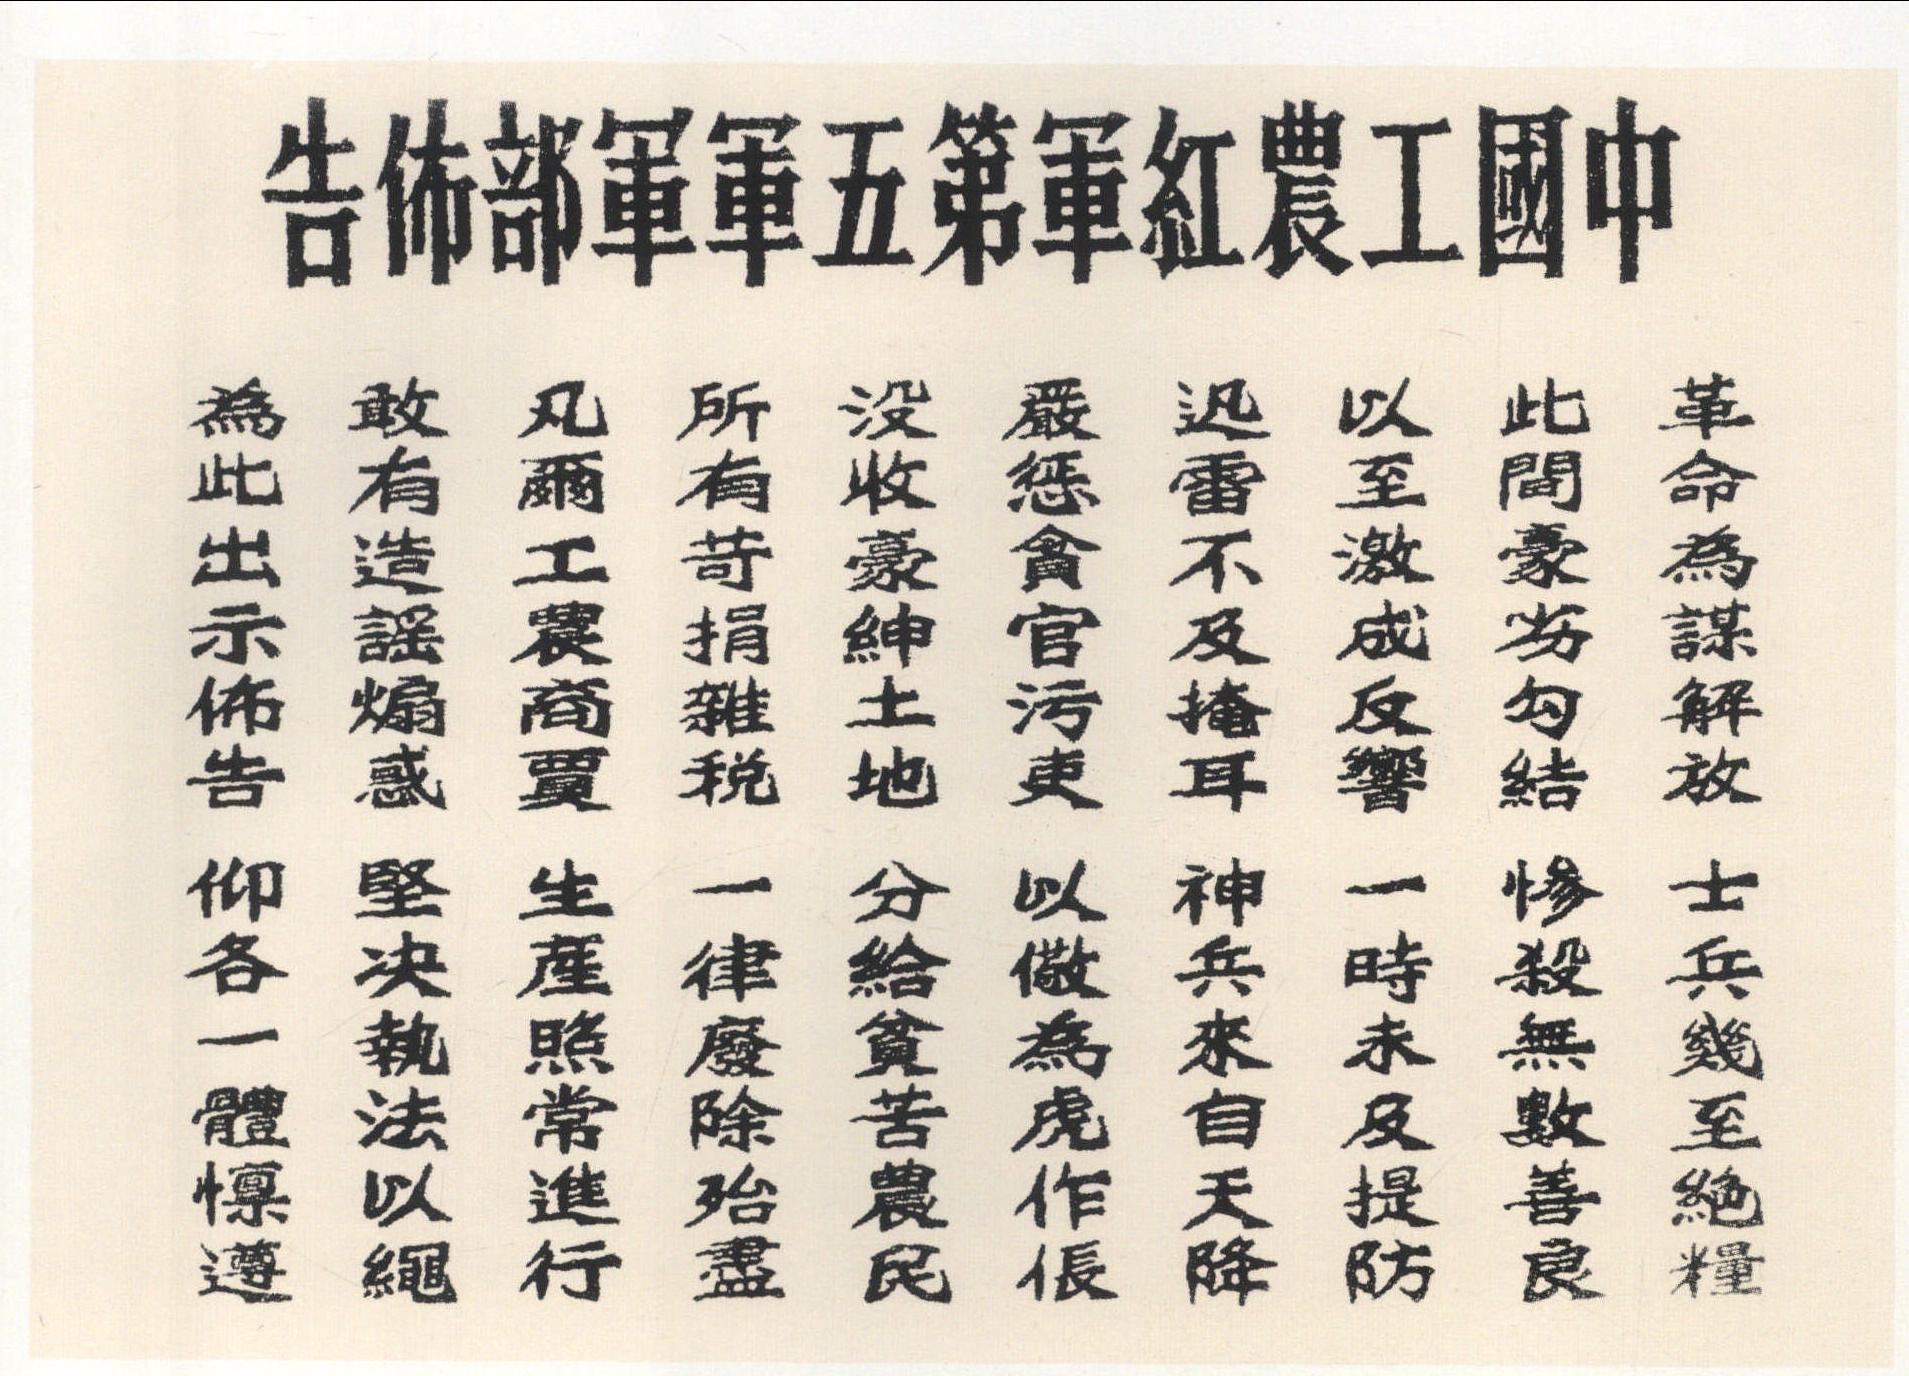 中國工農紅軍第五軍軍部佈告
革命為謀解放 士兵幾至絕糧
此間豪劣勾結 慘殺無數善良
以至激成反響 一時未及提防
迅雷不及掩耳 神兵來自天降
嚴懲貪官污吏 以儆為虎作倀
没收豪紳土地 分給貧苦農民
所有苛捐雜税 一律廢除殆盡
凡爾工農商賈 生產照常進行
敢有造謠煽惑 堅决執法以繩
為此出示佈告 仰各一體懔遵